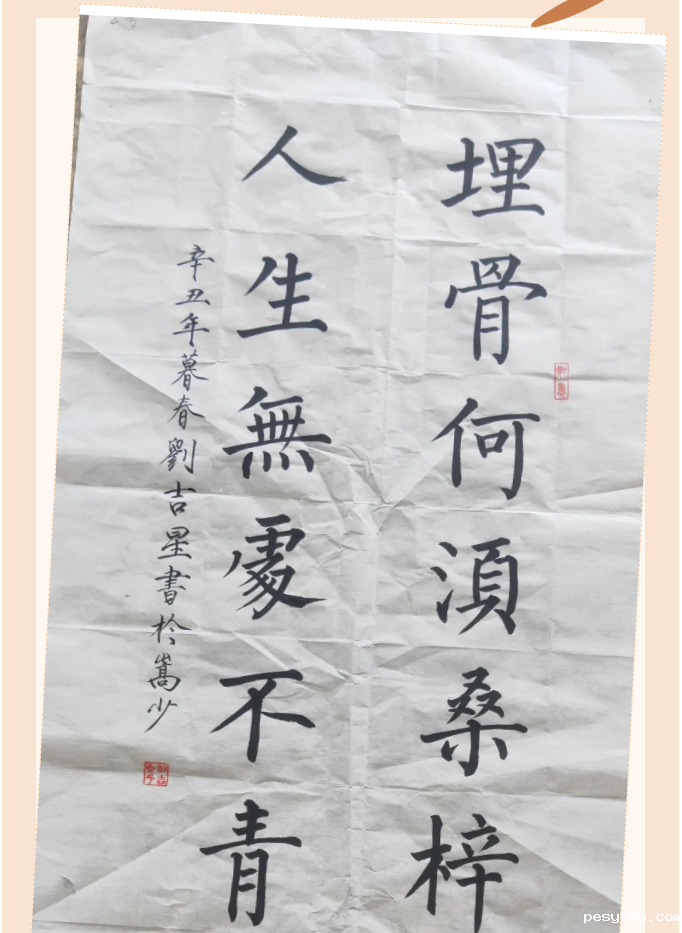 埋骨何須桑梓
人生無處不青
辛丑年暮春劉吉星書於嵩少
pesytem.com